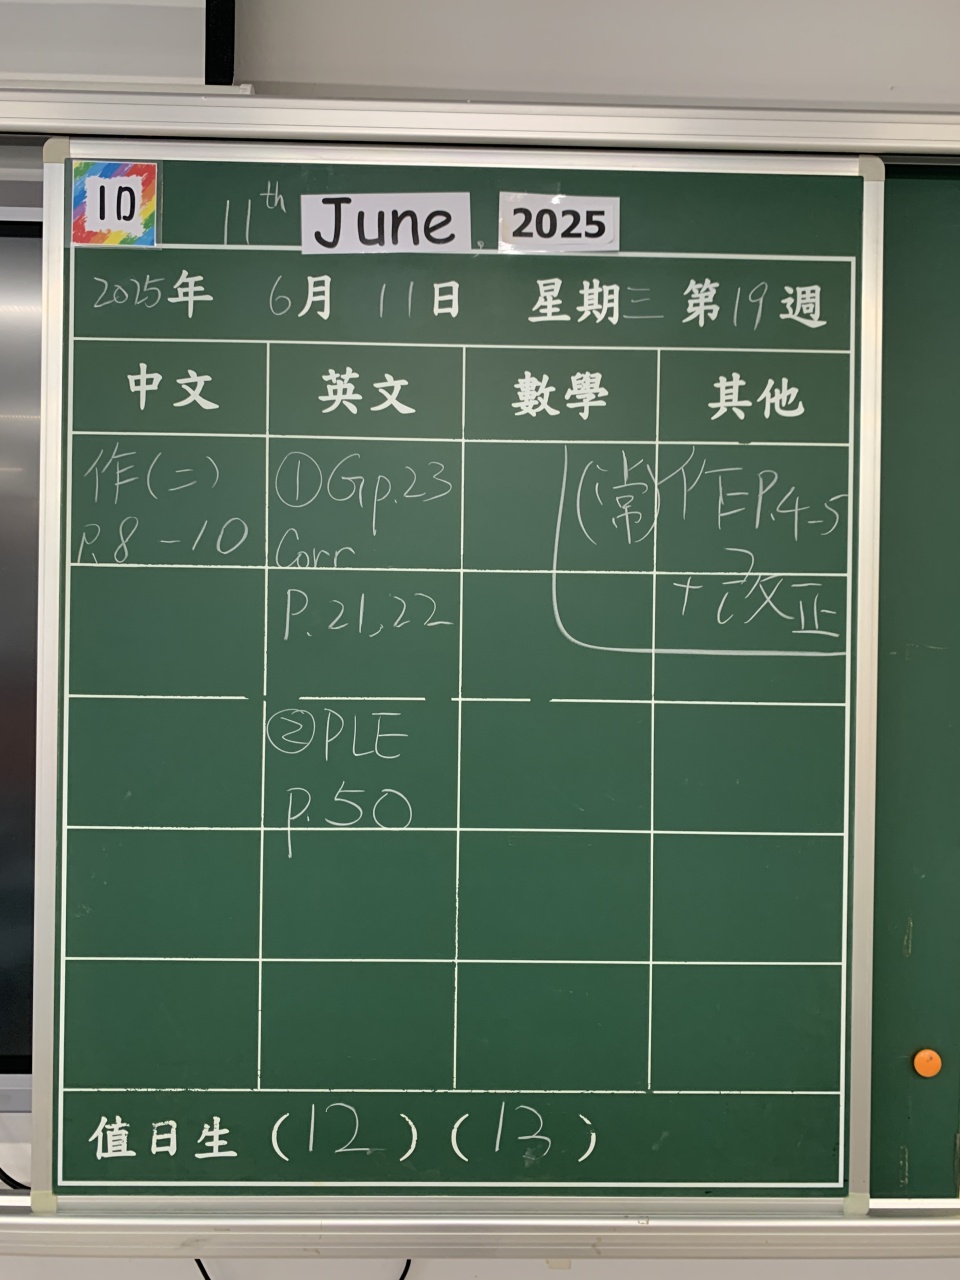 1D
11th June, 2025
2025年 6月 11日 星期三 第19週
中文 英文 數學 其他
作(二)
P.8-10
①Gp.23
Corr
P.21,22
②PLE
p.50
(常)作P.4-5
+改正
值日生 (12) (13)